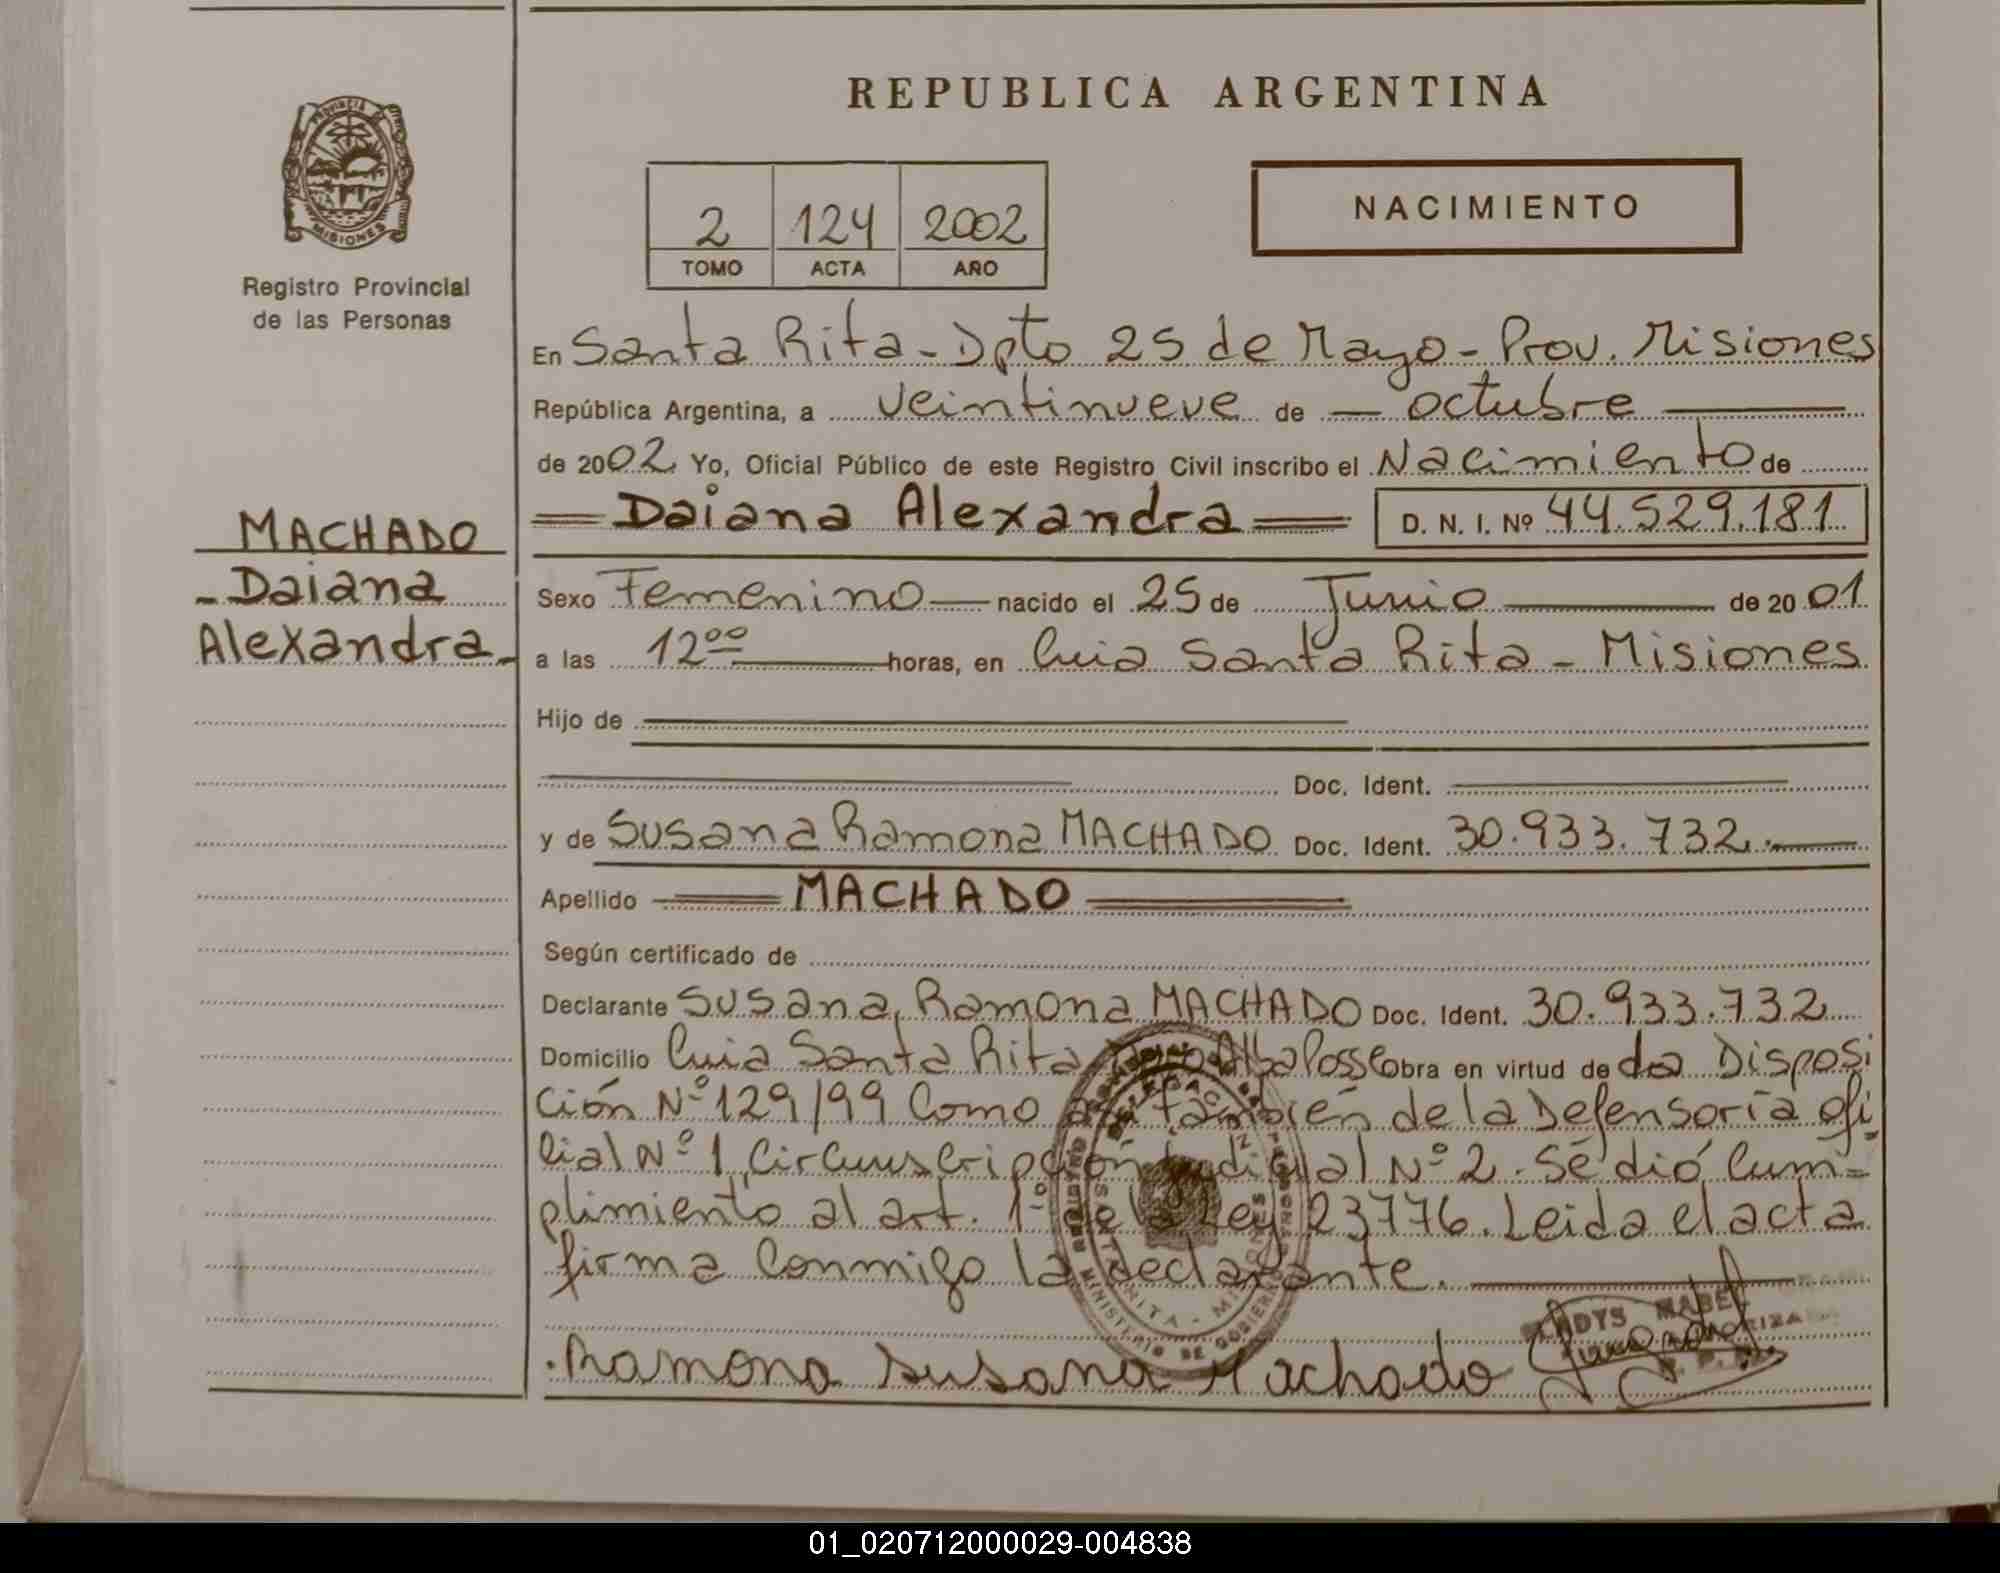 REPUBLICA ARGENTINA
PROVINCIA DE
MISIONES
Registro Provincial
de las Personas
2 124 2002
TOMO ACTA AÑO
NACIMIENTO
En Santa Rita - Dpto 25 de Mayo - Prov. Misiones
República Argentina, a veintinueve de — octubre —
de 2002 Yo, Oficial Público de este Registro Civil inscribo el Nacimiento de
MACHADO
- Daiana
Alexandra -
= Daiana Alexandra = D. N. I. Nº 44.529.181
Sexo Femenino — nacido el 25 de Junio — de 2001
a las 12 00 — horas, en Cnia Santa Rita - Misiones
Hijo de
Doc. Ident.
y de Susana Ramona MACHADO Doc. Ident. 30.933.732. —
Apellido = MACHADO =
Según certificado de
Declarante Susana Ramona MACHADO Doc. Ident. 30.933.732
Domicilio Cnia Santa Rita Alba Posse Obra en virtud de la Disposi
ción Nº 129/99 Como así también de la Defensoría ofi
cial Nº 1 Circunscripción Judicial Nº 2. Se dió Cum=
plimiento al art. 1º de la Ley 23776. Leida el acta
firma Conmigo la declarante. —
GLADYS MABEL
.Ramona Susana Machado
MINISTERIO DE GOBIERNO
01_020712000029-004838